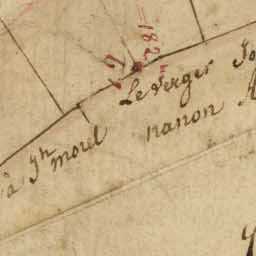 182
Le verger Jo
à Jh morel nanon A